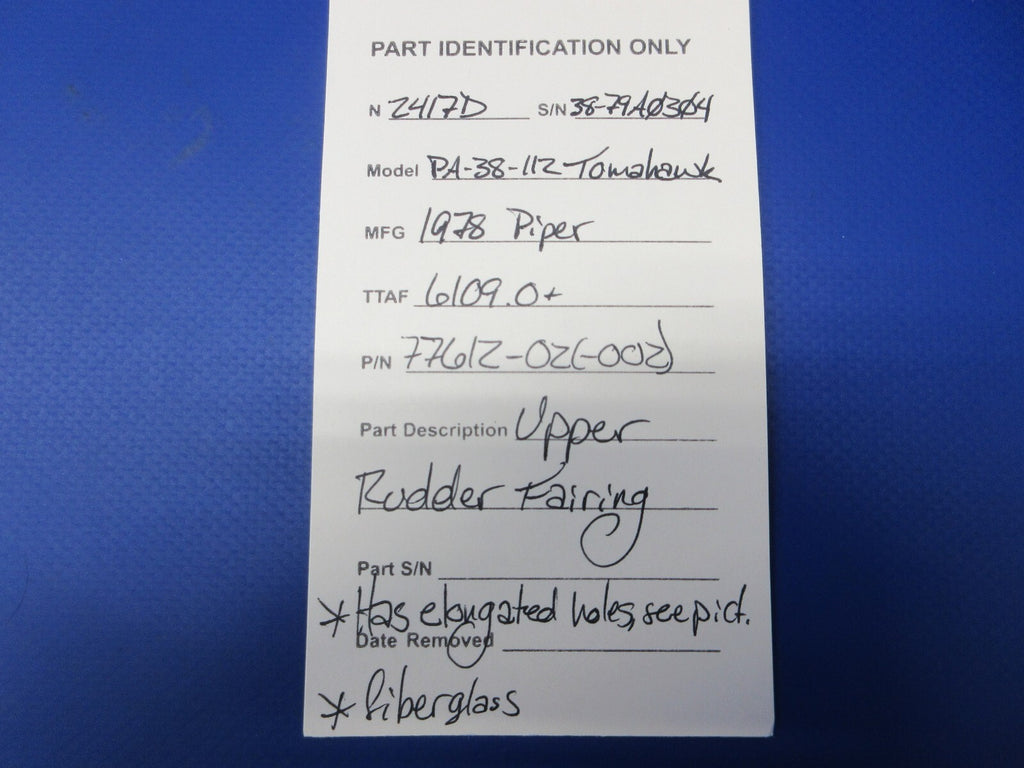 PART IDENTIFICATION ONLY
N 2417D S/N 38-79A0304
Model PA-38-112 Tomahawk
MFG 1978 Piper
TTAF 6109.0+
P/N 77612-02(-002)
Part Description Upper
Rudder Fairing
Part S/N
* Has elongated holes, see pict.
Date Removed
* fiberglass